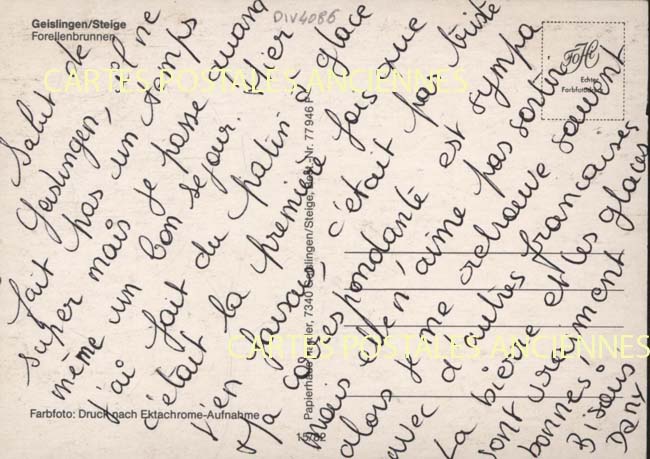 Geislingen/Steige
Forellenbrunnen
DIV4086
Salut de
Geislingen, il ne
fait pas un temps
super mais je passe quand
même un bon séjour. Hier
j'ai fait du patin à glace
c'était la première fois que
j'en faisais, c'était pas triste
Ma correspondante est sympa
mais elle n'aime pas sortir
alors je me retrouve souvent
avec d'autres françaises
La bière et les glaces
sont vraiment
bonnes.
Bisous
Dany
FoHi
Echter
Farbfotodruck
Papierhaus 7340 Geislingen/Steige, Best.-Nr. 77946 F
Farbfoto: Druck nach Ektachrome-Aufnahme
15/82
CARTES POSTALES ANCIENNES
CARTES POSTALES ANCIENNES